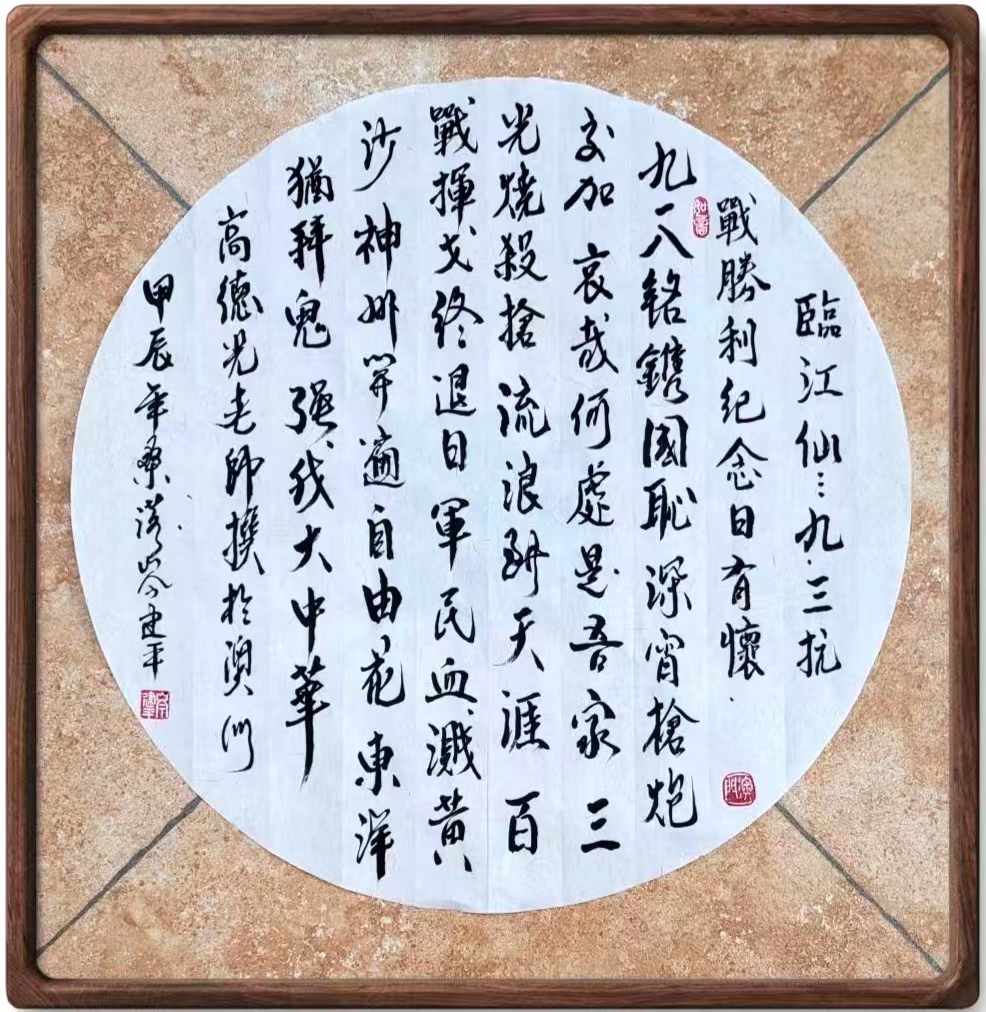 臨江仙…九·三抗
戰勝利紀念日有懷.
九一八銘鐫國恥深宵槍炮
交加哀哉何處是吾家三
光燒殺搶流浪到天涯百
戰揮戈終退日軍民血濺黃
沙神州開遍自由花東洋
猶拜鬼強我大中華
高德光老師撰於澳門
甲辰年桑山人建平
如意
澳門